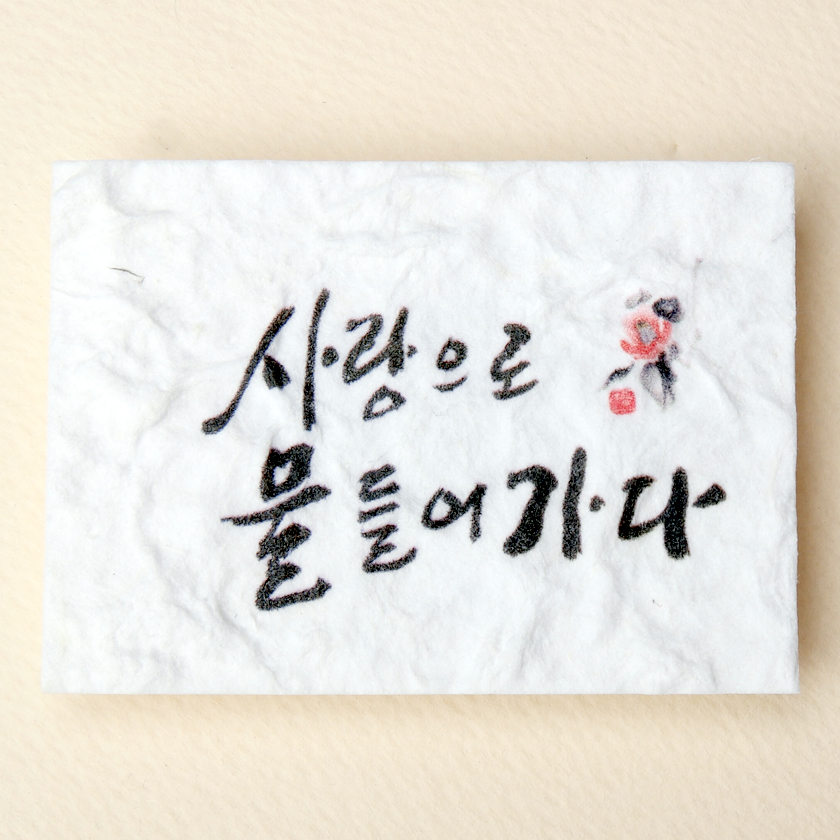 사랑으로
물들어가다